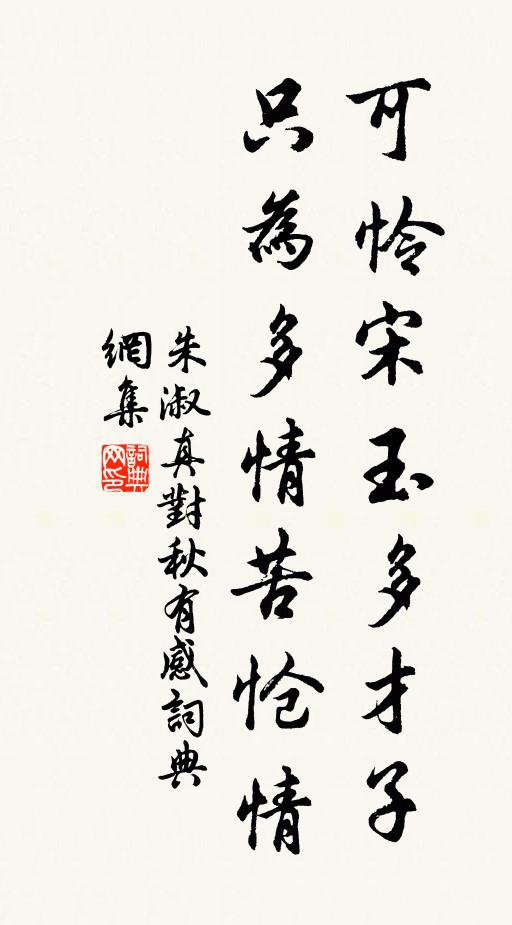 可憐宋玉多才子
只為多情苦愴情
朱淑真對秋有感詞典
網集
詞典
网印